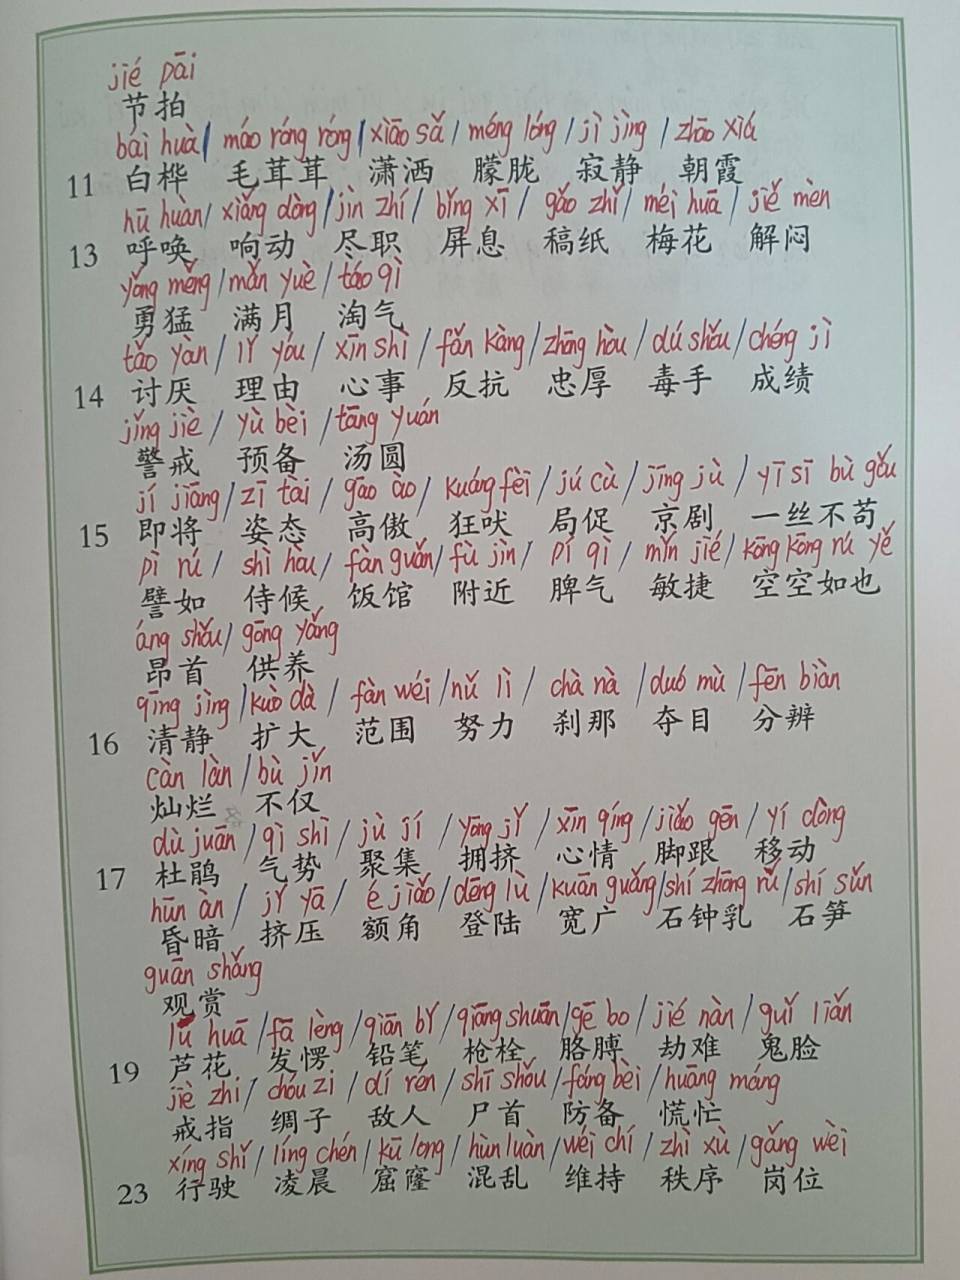 jié pāi
节拍
bái huà / máo róng róng / xiāo sǎ / méng lóng / jì jìng / zhāo xiá
11 白桦 毛茸茸 潇洒 朦胧 寂静 朝霞
hū huàn / xiǎng dòng / jìn zhí / bǐng xī / gǎo zhǐ / méi huā / jiě mèn
13 呼唤 响动 尽职 屏息 稿纸 梅花 解闷
yǒng měng / mǎn yuè / táo qì
勇猛 满月 淘气
tǎo yàn / lǐ yóu / xīn shì / fǎn kàng / zhōng hòu / dú shǒu / chéng jì
14 讨厌 理由 心事 反抗 忠厚 毒手 成绩
jǐng jiè / yù bèi / tāng yuán
警戒 预备 汤圆
jí jiāng / zī tài / gāo ào / kuáng fèi / jú cù / jīng jù / yī sī bù gǒu
15 即将 姿态 高傲 狂吠 局促 京剧 一丝不苟
pì rú / shì hòu / fàn guǎn / fù jìn / pí qì / mǐn jié / kōng kōng rú yě
譬如 侍候 饭馆 附近 脾气 敏捷 空空如也
áng shǒu / gōng yǎng
昂首 供养
qīng jìng / kuò dà / fàn wéi / nǔ lì / chà nà / duó mù / fēn biàn
16 清静 扩大 范围 努力 刹那 夺目 分辨
càn làn / bù jǐn
灿烂 不仅
dù juān / qì shì / jù jí / yōng jǐ / xīn qíng / jiǎo gēn / yí dòng
17 杜鹃 气势 聚集 拥挤 心情 脚跟 移动
hūn àn / jǐ yā / é jiǎo / dēng lù / kuān guǎng / shí zhōng rǔ / shí sǔn
昏暗 挤压 额角 登陆 宽广 石钟乳 石笋
guān shǎng
观赏
lú huā / fā lèng / qiān bǐ / qiāng shuān / gē bo / jié nàn / guǐ liǎn
19 芦花 发愣 铅笔 枪栓 胳膊 劫难 鬼脸
jiè zhi / chóu zi / dí rén / shī shǒu / fáng bèi / huāng máng
戒指 绸子 敌人 尸首 防备 慌忙
xíng shǐ / líng chén / kū long / hùn luàn / wéi chí / zhì xù / gǎng wèi
23 行驶 凌晨 窟窿 混乱 维持 秩序 岗位